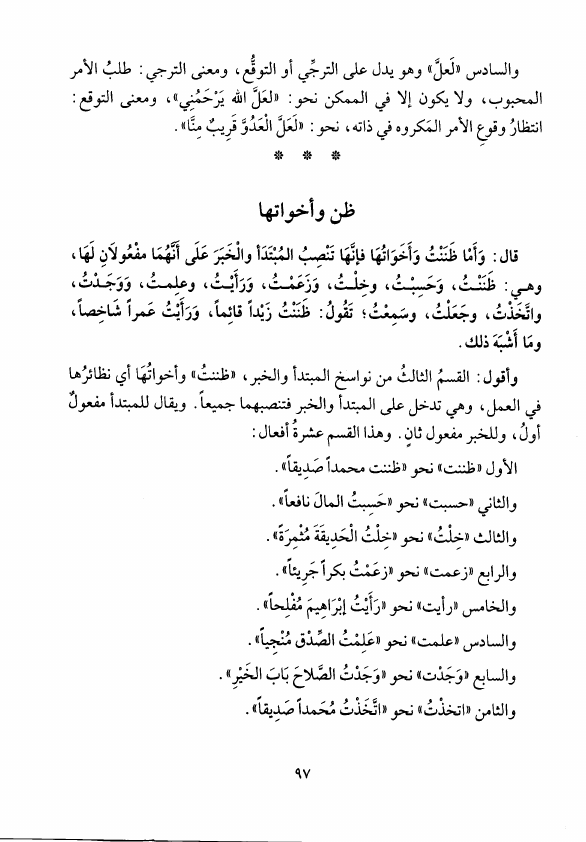 والسادس «لَعلَّ» وهو يدل على الترجِّي أو التوقُّع، ومعنى الترجي: طلبُ الأمر
المحبوب، ولا يكون إلا في الممكن نحو: «لعَلَّ الله يَرْحَمُنِي»، ومعنى التوقع:
انتظارُ وقوعِ الأمر المَكروه في ذاته، نحو: «لَعَلَّ الْعَدُوَّ قَرِيبٌ مِنَّا».
* * *
ظن وأخواتها
قال: وَأَمْا ظَنَنْتُ وَأَخَوَاتُهَا فإنَّهَا تَنْصِبُ المُبْتَدَأ والْخَبَرَ عَلَى أَنَّهُمَا مفْعُولاَنِ لَهَا،
وهـي: ظَنَنْـتُ، وَحَسِبْـتُ، وخِلْـتُ، وَزَعَمْـتُ، وَرَأَيْـتُ، وعلِمـتُ، وَوَجَـدْتُ،
واتَّخَذْتُ، وجَعَلْتُ، وسَمِعْتُ؛ تَقُولُ: ظَنَنْتُ زَيْداً قائِماً، وَرَأَيْتُ عَمراً شَاخِصاً،
ومَا أَشْبَهَ ذلك.
وأقول: القسمُ الثالثُ من نواسخ المبتدأ والخبر، «ظننتُ» وأخواتُهَا أي نظائرُها
في العمل، وهي تدخل على المبتدأ والخبر فتنصبهما جميعاً. ويقال للمبتدأ مفعولٌ
أولُ، وللخبر مفعول ثانٍ. وهذا القسم عشرةُ أفعال:
الأول «ظننت» نحو «ظننت محمداً صَدِيقاً».
والثاني «حسبت» نحو «حَسِبتُ المالَ نافعاً».
والثالث «خِلْتُ» نحو «خِلْتُ الْحَدِيقَةَ مُثْمِرَةً».
والرابع «زعمت» نحو «زعَمْتُ بكراً جَرِيئاً».
والخامس «رأيت» نحو «رَأَيْتُ إبْرَاهِيمَ مُفْلِحاً».
والسادس «علمت» نحو «عَلِمْتُ الصِّدْق مُنْجِياً».
والسابع «وَجَدْت» نحو «وَجَدْتُ الصَّلاَحَ بَابَ الخَيْرِ».
والثامن «اتخذْتُ» نحو «اتَّخَذْتُ مُحَمداً صَدِيقاً».
٩٧